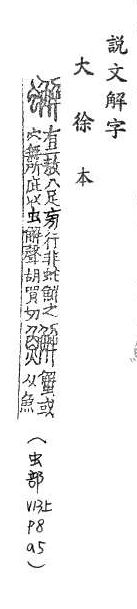 説文解字
大徐本
蠏
有二敖八足旁行非蛇鮮之
穴無所庇从虫解聲胡買切
蟹或
从魚
(虫部 V13上 P8 a5)